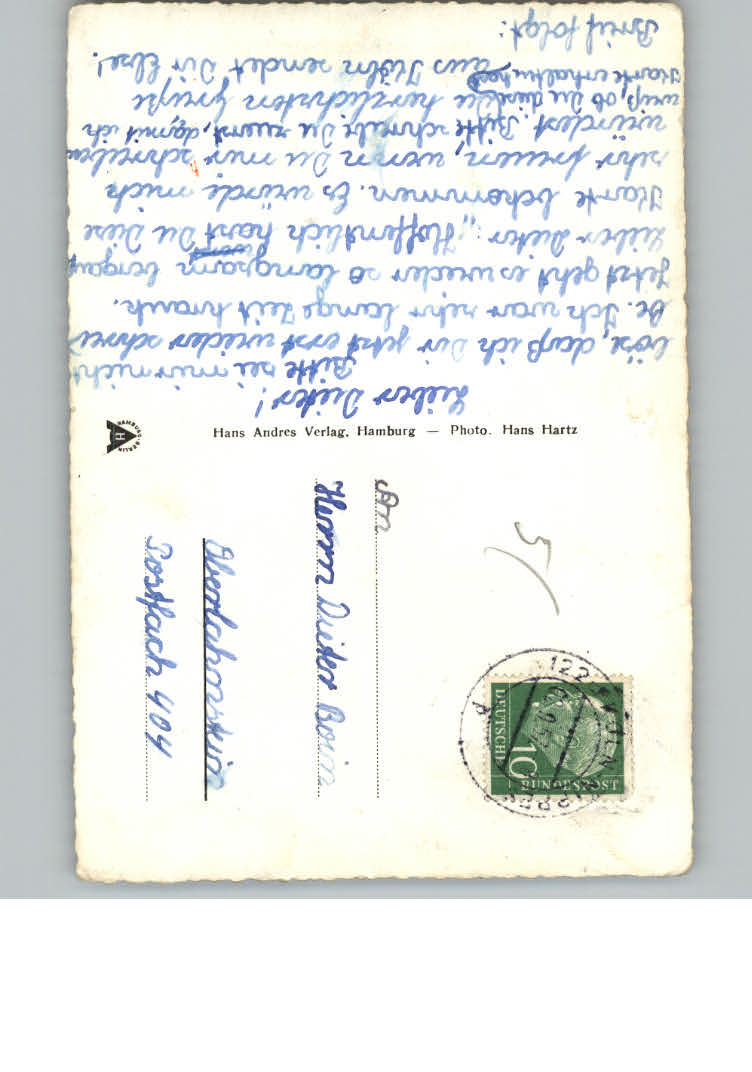 Lieber Dieter!
Bitte sei mir nicht
böse, daß ich Dir jetzt erst wieder schrei-
be. Ich war sehr lange Zeit krank.
Jetzt geht es wieder so langsam bergauf
Lieber Dieter: "Hoffentlich hast Du Diese
Karte bekommen. Es würde mich
sehr freuen, wenn Du mir schreiben
würdest. Bitte schreibe Du zuerst, damit ich
weiß, ob Du diese
Karte erhalten hast
Die herzlichsten Grüße
aus Köln sendet Dir Else!
Brief folgt:
Hans Andres Verlag, Hamburg — Photo. Hans Hartz
HAMBURG-BERLIN
H
An
Herrn Dieter
Oberlahnstein
Postfach 404
5/
122
DEUTSCHE
10
BUNDESPOST